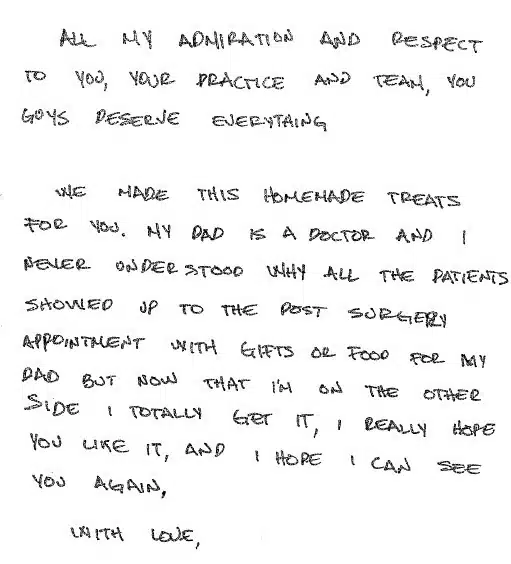 ALL MY ADMIRATION AND RESPECT
TO YOU, YOUR PRACTICE AND TEAM, YOU
GUYS DESERVE EVERYTHING
WE MADE THIS HOMEMADE TREATS
FOR YOU. MY DAD IS A DOCTOR AND I
NEVER UNDERSTOOD WHY ALL THE PATIENTS
SHOWED UP TO THE POST SURGERY
APPOINTMENT WITH GIFTS OR FOOD FOR MY
DAD BUT NOW THAT I'M ON THE OTHER
SIDE I TOTALLY GET IT, I REALLY HOPE
YOU LIKE IT, AND I HOPE I CAN SEE
YOU AGAIN,
WITH LOVE,